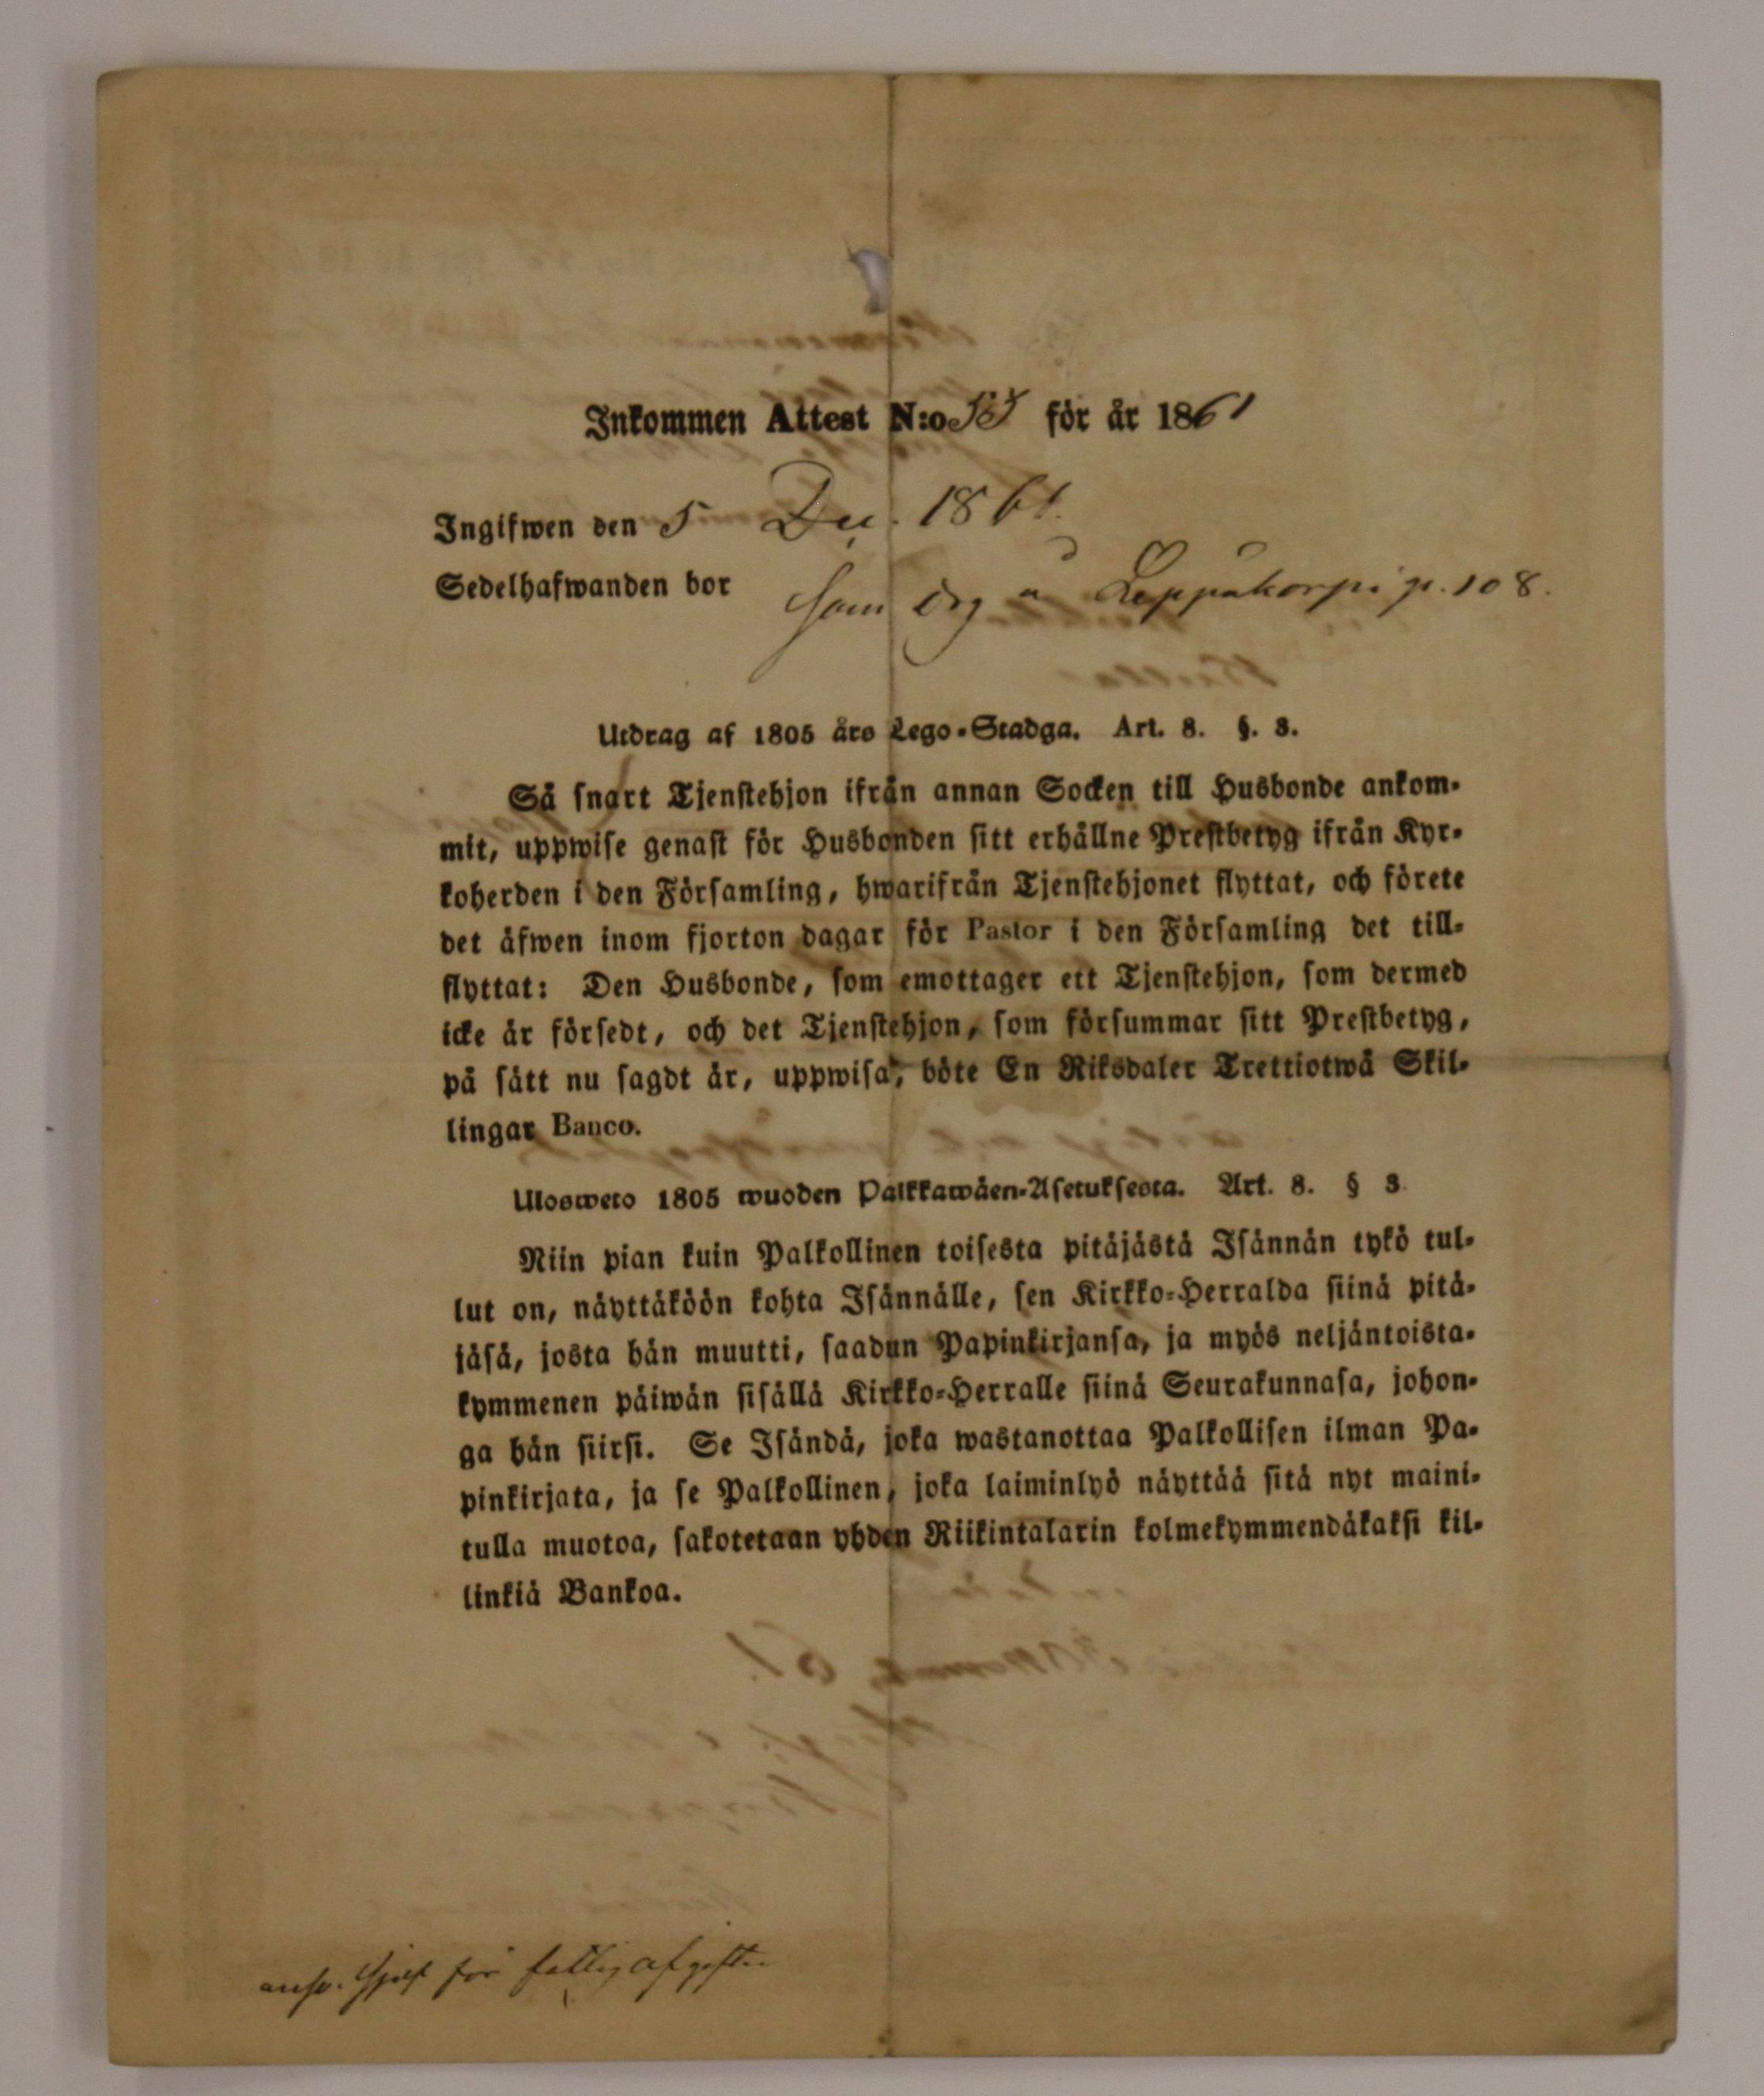 Inkommen Attest N:o 53 för år 1861
Ingifwen den 5 Dec. 1861.
Sedelhafwanden bor som drg å Leppäkorpi p. 108.
Utdrag af 1805 års Lego-Stadga. Art. 8. §. 3.
Så snart Tjenstehjon ifrån annan Socken till Husbonde ankom-
mit, uppwise genast för Husbonden sitt erhållne Prestbetyg ifrån Kyr-
koherden i den Församling, hwarifrån Tjenstehjonet flyttat, och förete
det äfwen inom fjorton dagar för Pastor i den Församling det till-
flyttat: Den Husbonde, som emottager ett Tjenstehjon, som dermed
icke är försedt, och det Tjenstehjon, som försummar sitt Prestbetyg,
på sätt nu sagdt är, uppwisa, böte En Riksdaler Trettiotwå Skil-
lingar Banco.
Ulosweto 1805 wuoden Palkkawäen-Asetuksesta. Art. 8. § 3
Niin pian kuin Palkollinen toisesta pitäjästä Isännän tykö tul-
lut on, näyttäköön kohta Isännälle, sen Kirkko-Herralda siinä pitä-
jäsä, josta hän muutti, saadun Papinkirjansa, ja myös neljäntoista-
kymmenen päiwän sisällä Kirkko-Herralle siinä Seurakunnasa, johon-
ga hän siirsi. Se Isändä, joka wastanottaa Palkollisen ilman Pa-
pinkirjata, ja se Palkollinen, joka laiminlyö näyttää sitä nyt maini-
tulla muotoa, sakotetaan yhden Riikintalarin kolmekymmendäkaksi kil-
linkiä Bankoa.
answ. sjelf för fattigafgifter